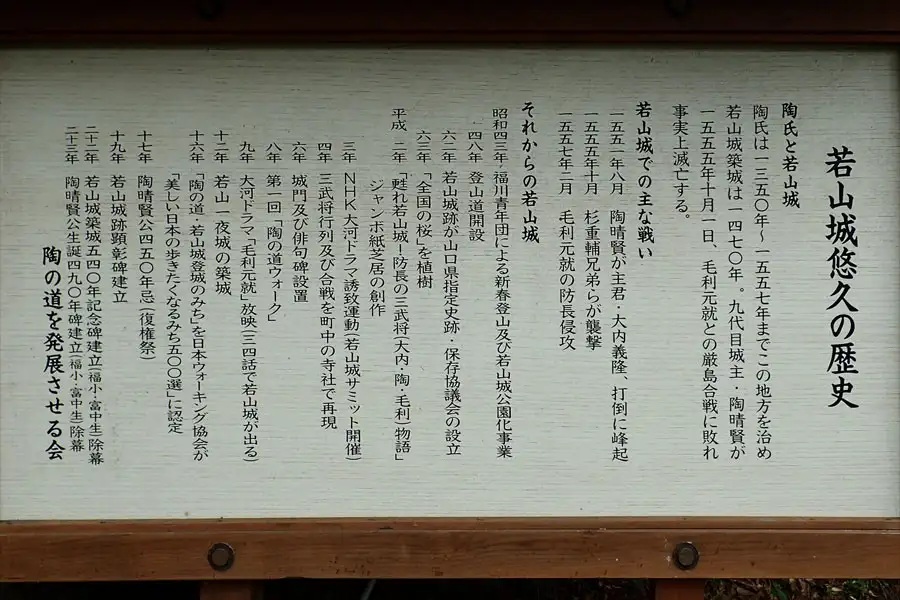 若山城悠久の歴史
陶氏と若山城
陶氏は一三五〇年～一五五七年までこの地方を治め
若山城築城は一四七〇年。九代目城主・陶晴賢が
一五五五年十月一日、毛利元就との厳島合戦に敗れ
事実上滅亡する。
若山城での主な戦い
一五五一年八月 陶晴賢が主君・大内義隆、打倒に峰起
一五五五年十月 杉重輔兄弟らが襲撃
一五五七年二月 毛利元就の防長侵攻
それからの若山城
昭和四三年 福川青年団による新春登山及び若山城公園化事業
四八年 登山道開設
六二年 若山城跡が山口県指定史跡・保存協議会の設立
六三年 「全国の桜」を植樹
平成 二年 「甦れ若山城―防長の三武将(大内・陶・毛利)物語」
ジャンボ紙芝居の創作
三年 NHK大河ドラマ誘致運動(若山城サミット開催)
四年 三武将行列及び合戦を町中の寺社で再現
六年 城門及び俳句碑設置
八年 第一回「陶の道ウォーク」
九年 大河ドラマ「毛利元就」放映(三四話で若山城が出る)
十二年 若山一夜城の築城
十六年 「陶の道・若山城登城のみち」を日本ウォーキング協会が
「美しい日本の歩きたくなるみち五〇〇選」に認定
十七年 陶晴賢公四五〇年忌(復権祭)
十九年 若山城跡顕彰碑建立
二十二年 若山城築城五四〇年記念碑建立(福小・富中生)除幕
二十三年 陶晴賢公生誕四九〇年碑建立(福小・富中生)除幕
陶の道を発展させる会